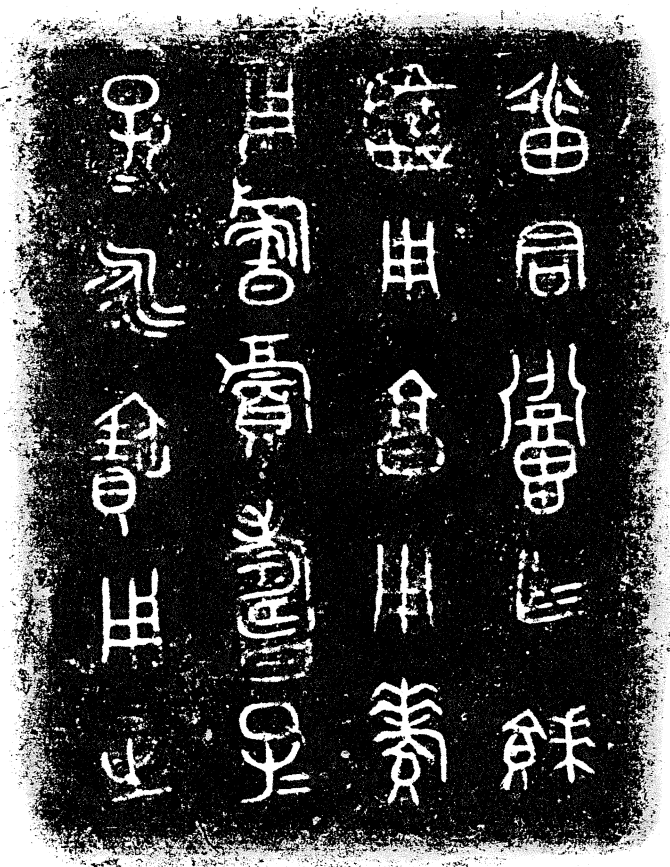 番君召乍
𠤳用亯用孝
用旂眉壽子=
孫=永寶用之